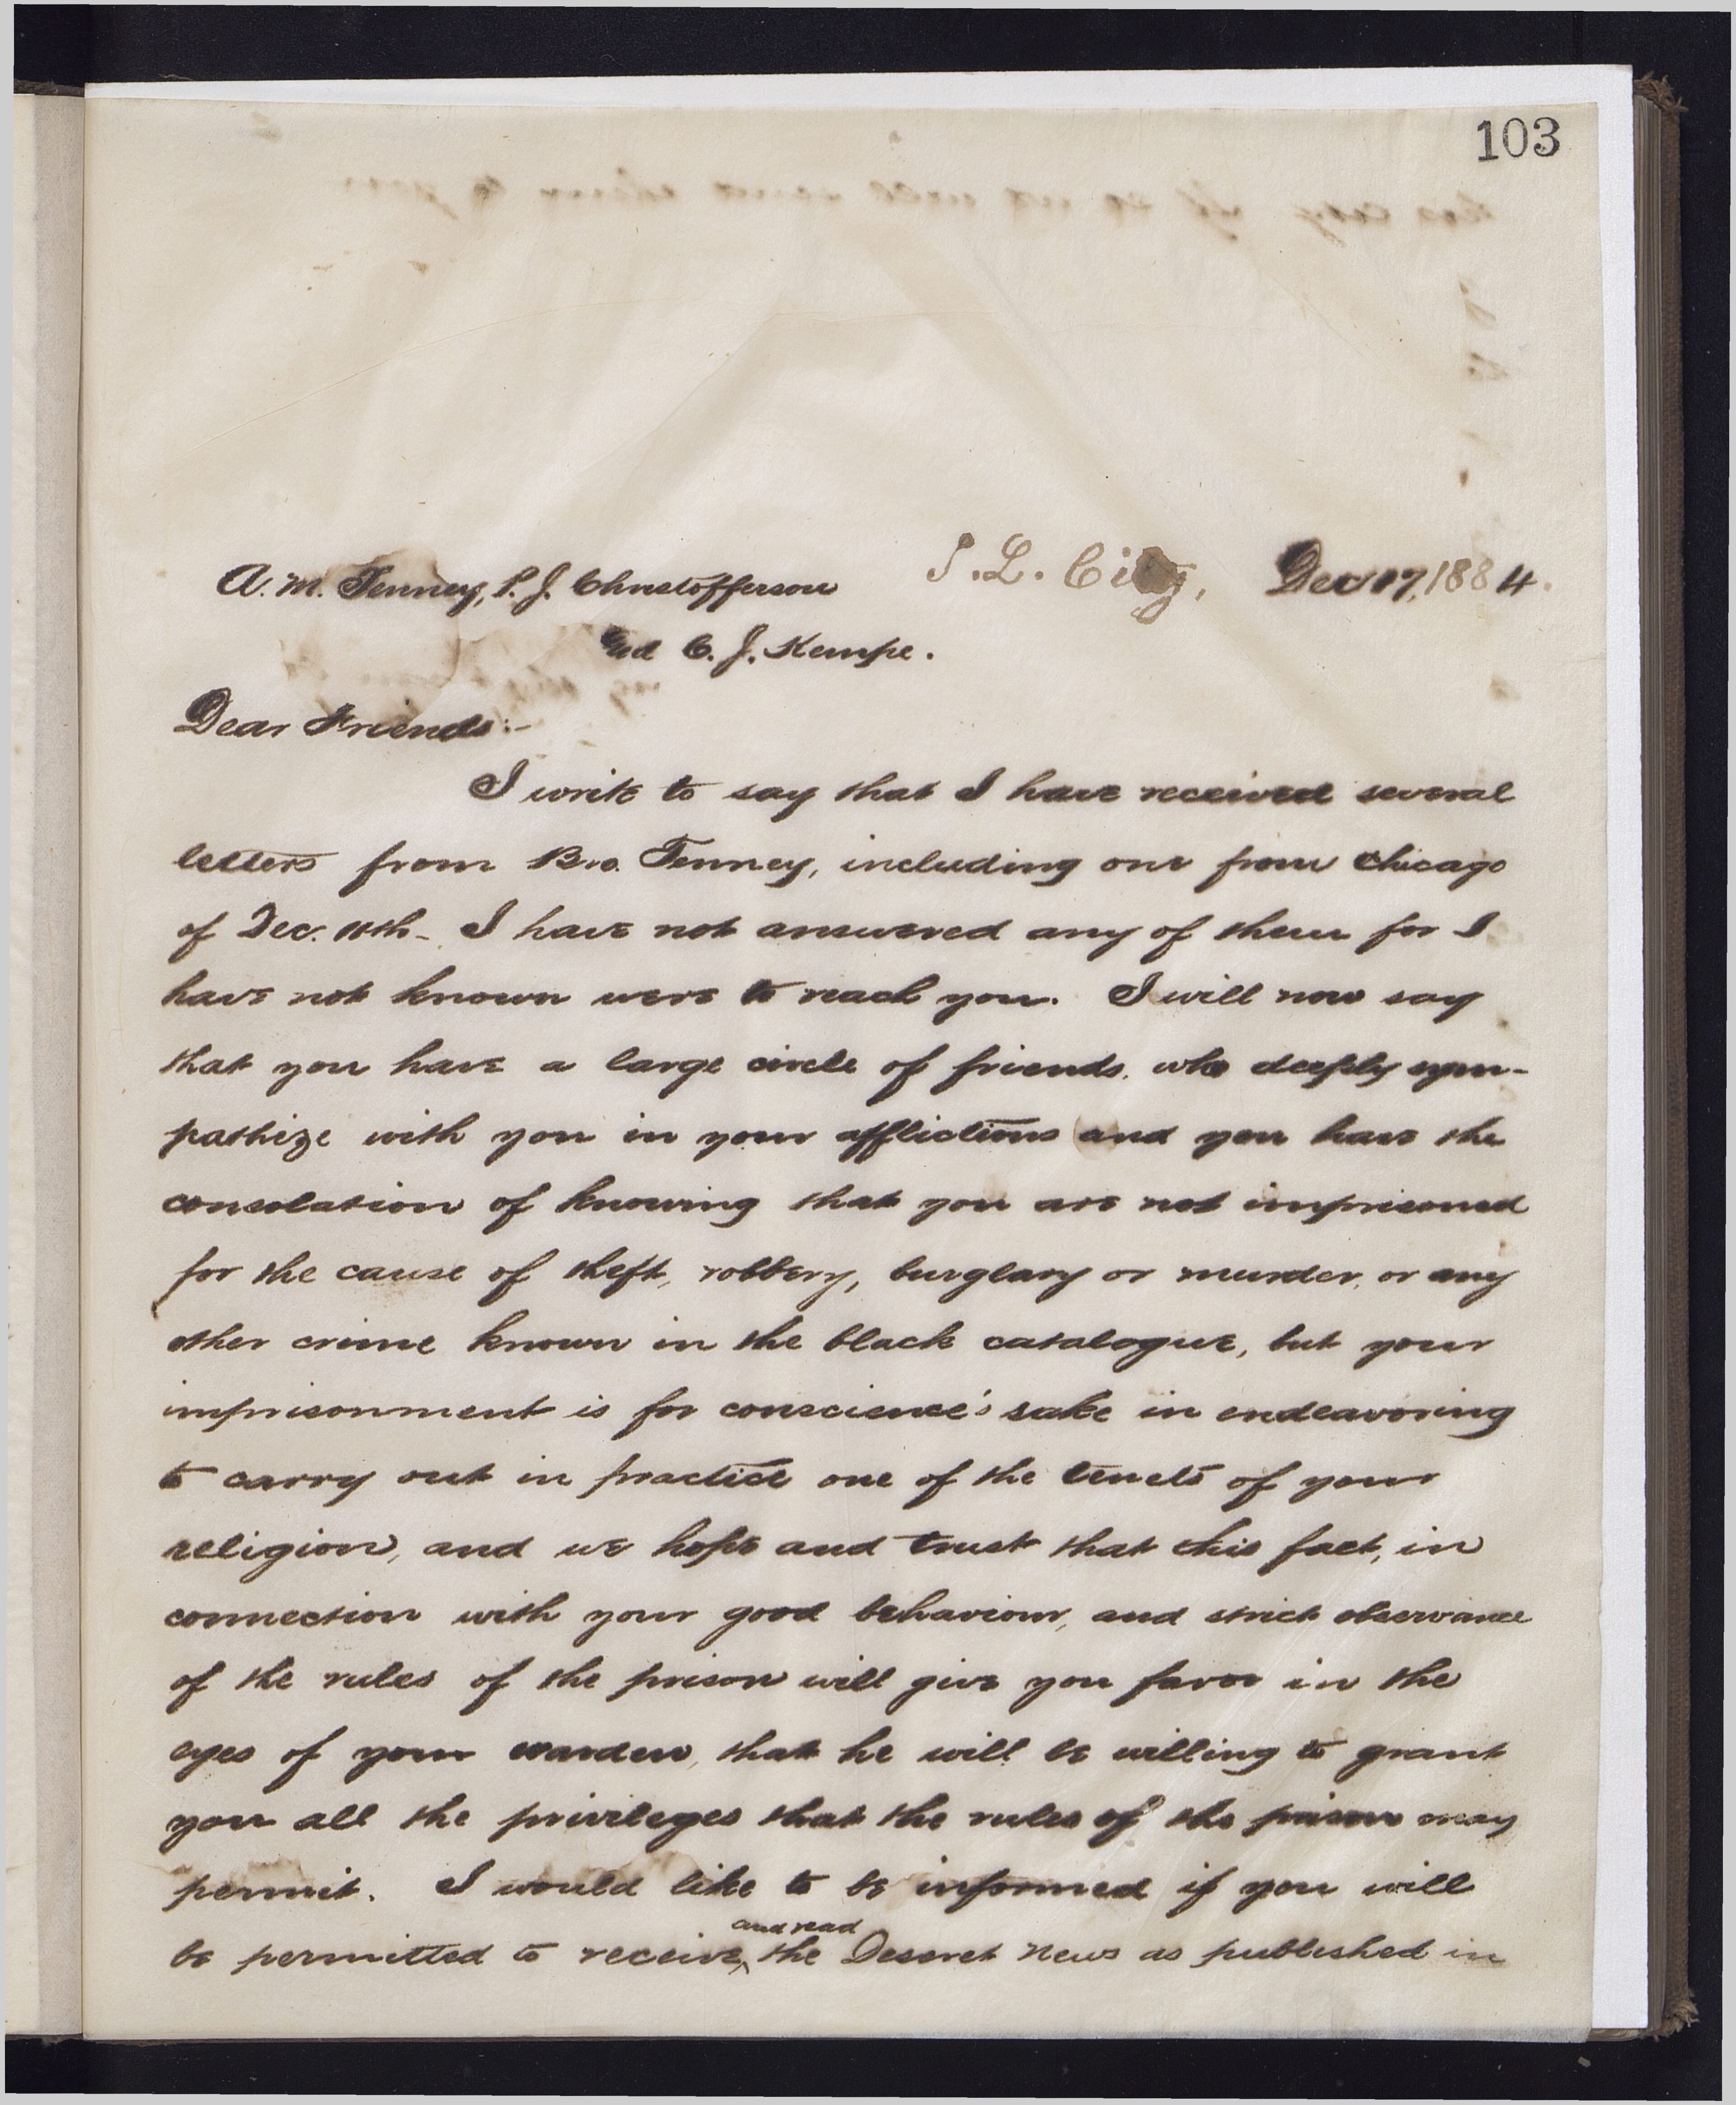 103
S. L. City, Dec 17, 1884.
A. M. Tenney, P. J. Christofferson
and C. J. Kempe.
Dear Friends:-
I write to say that I have received several
letters from Bro. Tenney, including one from Chicago
of Dec. 11th- I have not answered any of them for I
have not known were to reach you. I will now say
that you have a large circle of friends. who deeply sym-
pathize with you in your afflictions and you have the
consolation of knowing that you are not imprisoned
for the cause of theft, robbery, burglary or murder, or any
other crime known in the black catalogue, but your
imprisonment is for conscience's sake in endeavoring
to carry out in practice one of the tenets of your
religion, and we hope and trust that this fact, in
connection with your good behaviour, and strict observance
of the rules of the prison will give you favor in the
eyes of your warden, that he will be willing to grant
you all the privileges that the rules of the prison may
permit. I would like to be informed if you will
be permitted to receive, and read the Deseret News as published in